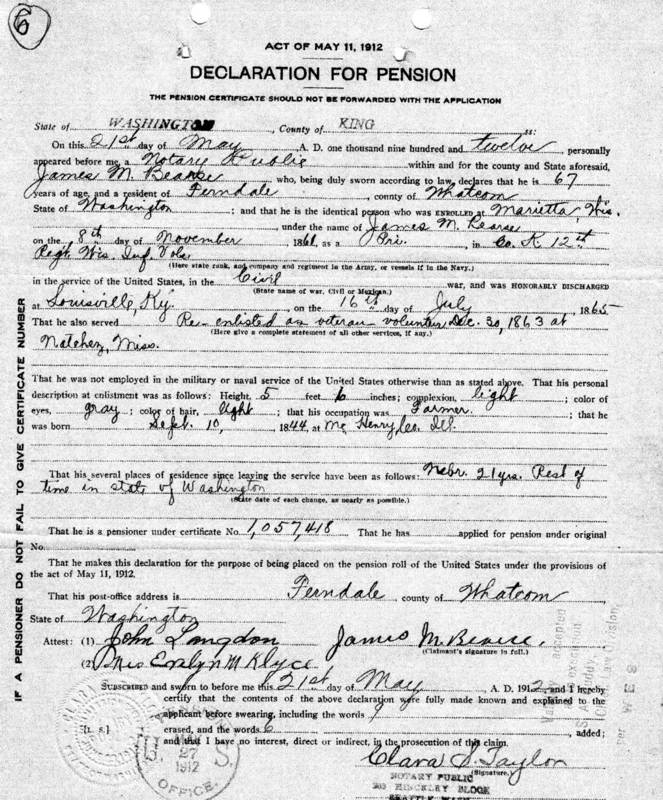 6
ACT OF MAY 11, 1912
DECLARATION FOR PENSION
THE PENSION CERTIFICATE SHOULD NOT BE FORWARDED WITH THE APPLICATION
State of WASHINGTON, County of KING ss:
On this 21st day of May, A. D. one thousand nine hundred and twelve, personally
appeared before me, a Notary Public within and for the county and State aforesaid,
James M. Bearse who, being duly sworn according to law, declares that he is 67
years of age, and a resident of Ferndale, county of Whatcom
State of Washington; and that he is the identical person who was ENROLLED at Marietta, Wis.
, under the name of James M. Bearse
on the 8th day of November 1861, as a Pri., in Co. K 12th
Regt. Wis. Inf. Vols.
(Here state rank, and company and regiment in the Army, or vessels if in the Navy.)
in the service of the United States, in the Civil war, and was HONORABLY DISCHARGED
(State name of war, Civil or Mexican.)
at Louisville, Ky., on the 16th day of July 1865
That he also served Re-enlisted as veteran volunteer Dec. 30, 1863 at
(Here give a complete statement of all other services, if any.)
Natchez, Miss.
That he was not employed in the military or naval service of the United States otherwise than as stated above. That his personal
description at enlistment was as follows: Height, 5 feet 6 inches; complexion, light; color of
eyes, gray; color of hair, light; that his occupation was Farmer; that he
was born Sept. 10, 1844, at Mc Henry, Co. Ill.
That his several places of residence since leaving the service have been as follows: Nebr. 21 yrs. Rest of
time in state of Washington
(State date of each change, as nearly as possible.)
That he is a pensioner under certificate No. 1,057,418 That he has applied for pension under original
No.
That he makes this declaration for the purpose of being placed on the pension roll of the United States under the provisions of
the act of May 11, 1912.
That his post-office address is Ferndale, county of Whatcom
State of Washington
Attest: (1) John Langdon James M. Bearse.
(Claimant's signature in full.)
(2) Mrs Evalyn M Klyce
SUBSCRIBED and sworn to before me this 21st day of May, A. D. 1912, and I hereby
certify that the contents of the above declaration were fully made known and explained to the
applicant before swearing, including the words 9
[L. S.] erased, and the words 6, added;
and that I have no interest, direct or indirect, in the prosecution of this claim.
Clara S. Taylor
(Signature.)
NOTARY PUBLIC
HINCKLEY BLOCK
SEATTLE WASH
U. S.
PENSION
MAY
27
1912
OFFICE.
IF A PENSIONER DO NOT FAIL TO GIVE CERTIFICATE NUMBER